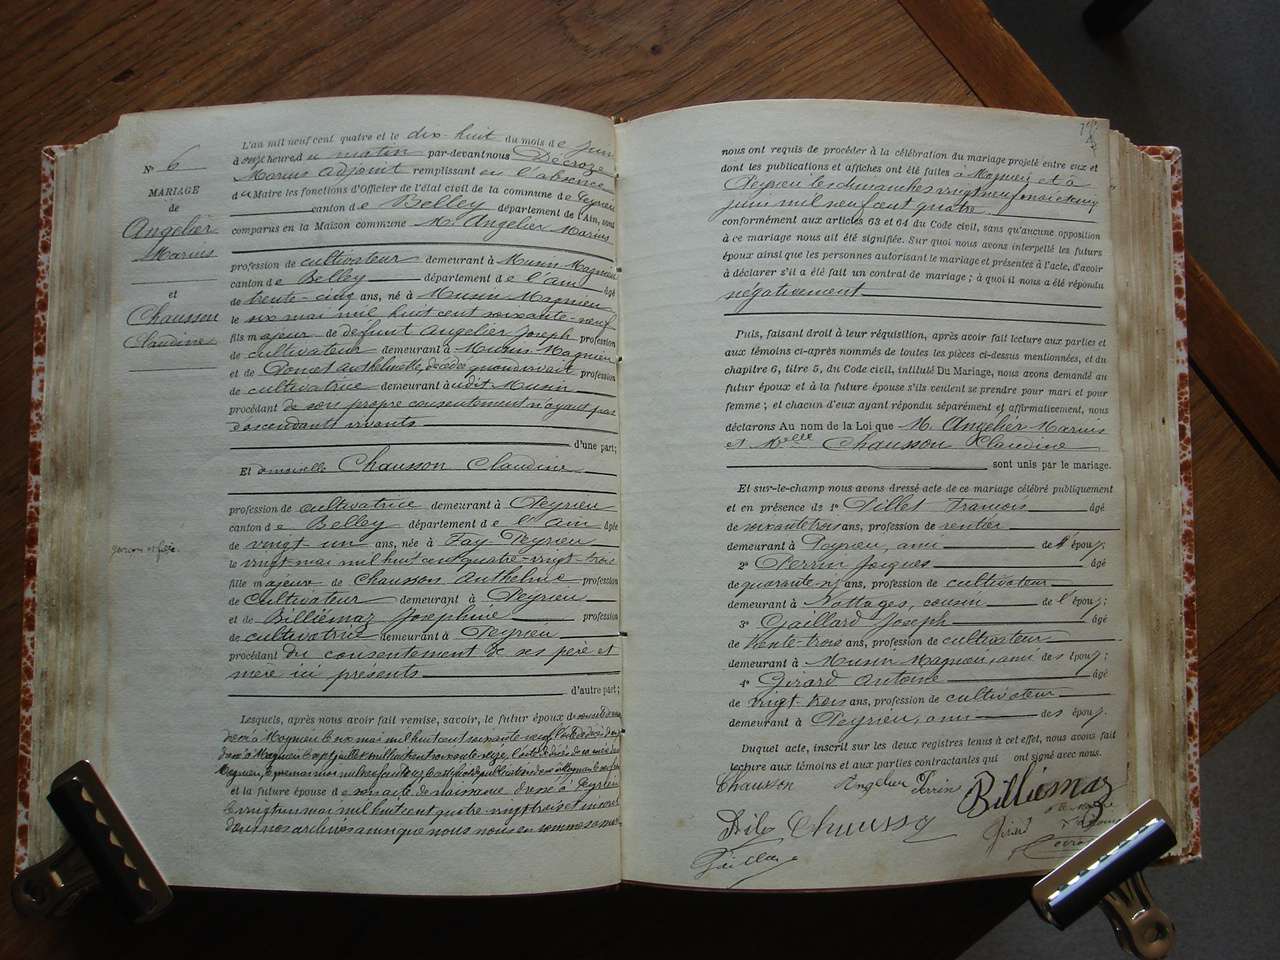 N° 6
MARIAGE
de
Angelier
Marius
et
Chausson
Claudine
L'an mil neuf cent quatre et le dix-huit du mois de juin
à onze heures du matin par-devant nous Decroze
Marius adjoint remplissant en l'absence
du Maire les fonctions d'Officier de l'état civil de la commune de Peyrieu
canton de Belley département de l'Ain, sont
comparus en la Maison commune M. Angelier Marius
profession de cultivateur demeurant à Musin Magnieu
canton de Belley département de l'ain âgé
de trente-cinq ans, né à Musin Magnieu
le six mai mil huit cent soixante-neuf
fils majeur de défunt Angelier Joseph profession
de cultivateur demeurant à Musin Magnieu
et de Anthelmette, décédée quand vivait profession
de cultivatrice demeurant audit Musin
procédant de son propre consentement n'ayant pas
d'ascendants vivants
d'une part;
Et demoiselle Chausson Claudine
profession de cultivatrice demeurant à Peyrieu
canton de Belley département de l'Ain âgée
de vingt-un ans, née à Fay Peyrieu
le vingt mai mil huit cent quatre-vingt-trois
fille majeure de Chausson Anthelme profession
de cultivateur demeurant à Peyrieu
et de Billiémaz Joséphine profession
de cultivatrice demeurant à Peyrieu
procédant du consentement de ses père et
mère ici présents
d'autre part;
Lesquels, après nous avoir fait remise, savoir, le futur époux de son acte de naissance
dressé à Magnieu le six mai mil huit cent soixante-neuf, l'acte de décès de son
et la future épouse de son acte de naissance dressé à Peyrieu
le vingt un mai mil huit cent quatre-vingt-trois et inscrit
dans nos archives ainsi que nous nous en sommes assuré
nous ont requis de procéder à la célébration du mariage projeté entre eux et
dont les publications et affiches ont été faites à Magnieu et à
Peyrieu les dimanches vingt neuf mai et cinq
juin mil neuf cent quatre
conformément aux articles 63 et 64 du Code civil, sans qu'aucune opposition
à ce mariage nous ait été signifiée. Sur quoi nous avons interpellé les futurs
époux ainsi que les personnes autorisant le mariage et présentes à l'acte, d'avoir
à déclarer s'il a été fait un contrat de mariage; à quoi il nous a été répondu
négativement
Puis, faisant droit à leur réquisition, après avoir fait lecture aux parties et
aux témoins ci-après nommés de toutes les pièces ci-dessus mentionnées, et du
chapitre 6, titre 5, du Code civil, intitulé Du Mariage, nous avons demandé au
futur époux et à la future épouse s'ils veulent se prendre pour mari et pour
femme; et chacun d'eux ayant répondu séparément et affirmativement, nous
déclarons Au nom de la Loi que M. Angelier Marius
et Melle Chausson Claudine
sont unis par le mariage.
Et sur-le-champ nous avons dressé acte de ce mariage célébré publiquement
et en présence de 1° Pillet François âgé
de soixante trois ans, profession de rentier
demeurant à Peyrieu, ami de l'époux.
2° Perrin Jacques âgé
de quarante six ans, profession de cultivateur
demeurant à Nattages, cousin de l'épouse;
3° Gaillard Joseph âgé
de trente-trois ans, profession de cultivateur
demeurant à Musin Magnieu, ami des époux;
4° Girard Antoine âgé
de vingt-trois ans, profession de cultivateur
demeurant à Peyrieu, ami des époux.
Duquel acte, inscrit sur les deux registres tenus à cet effet, nous avons fait
lecture aux témoins et aux parties contractantes qui ont signé avec nous.
Chausson Angelier Perrin Billiémaz
Girard
Gaillard